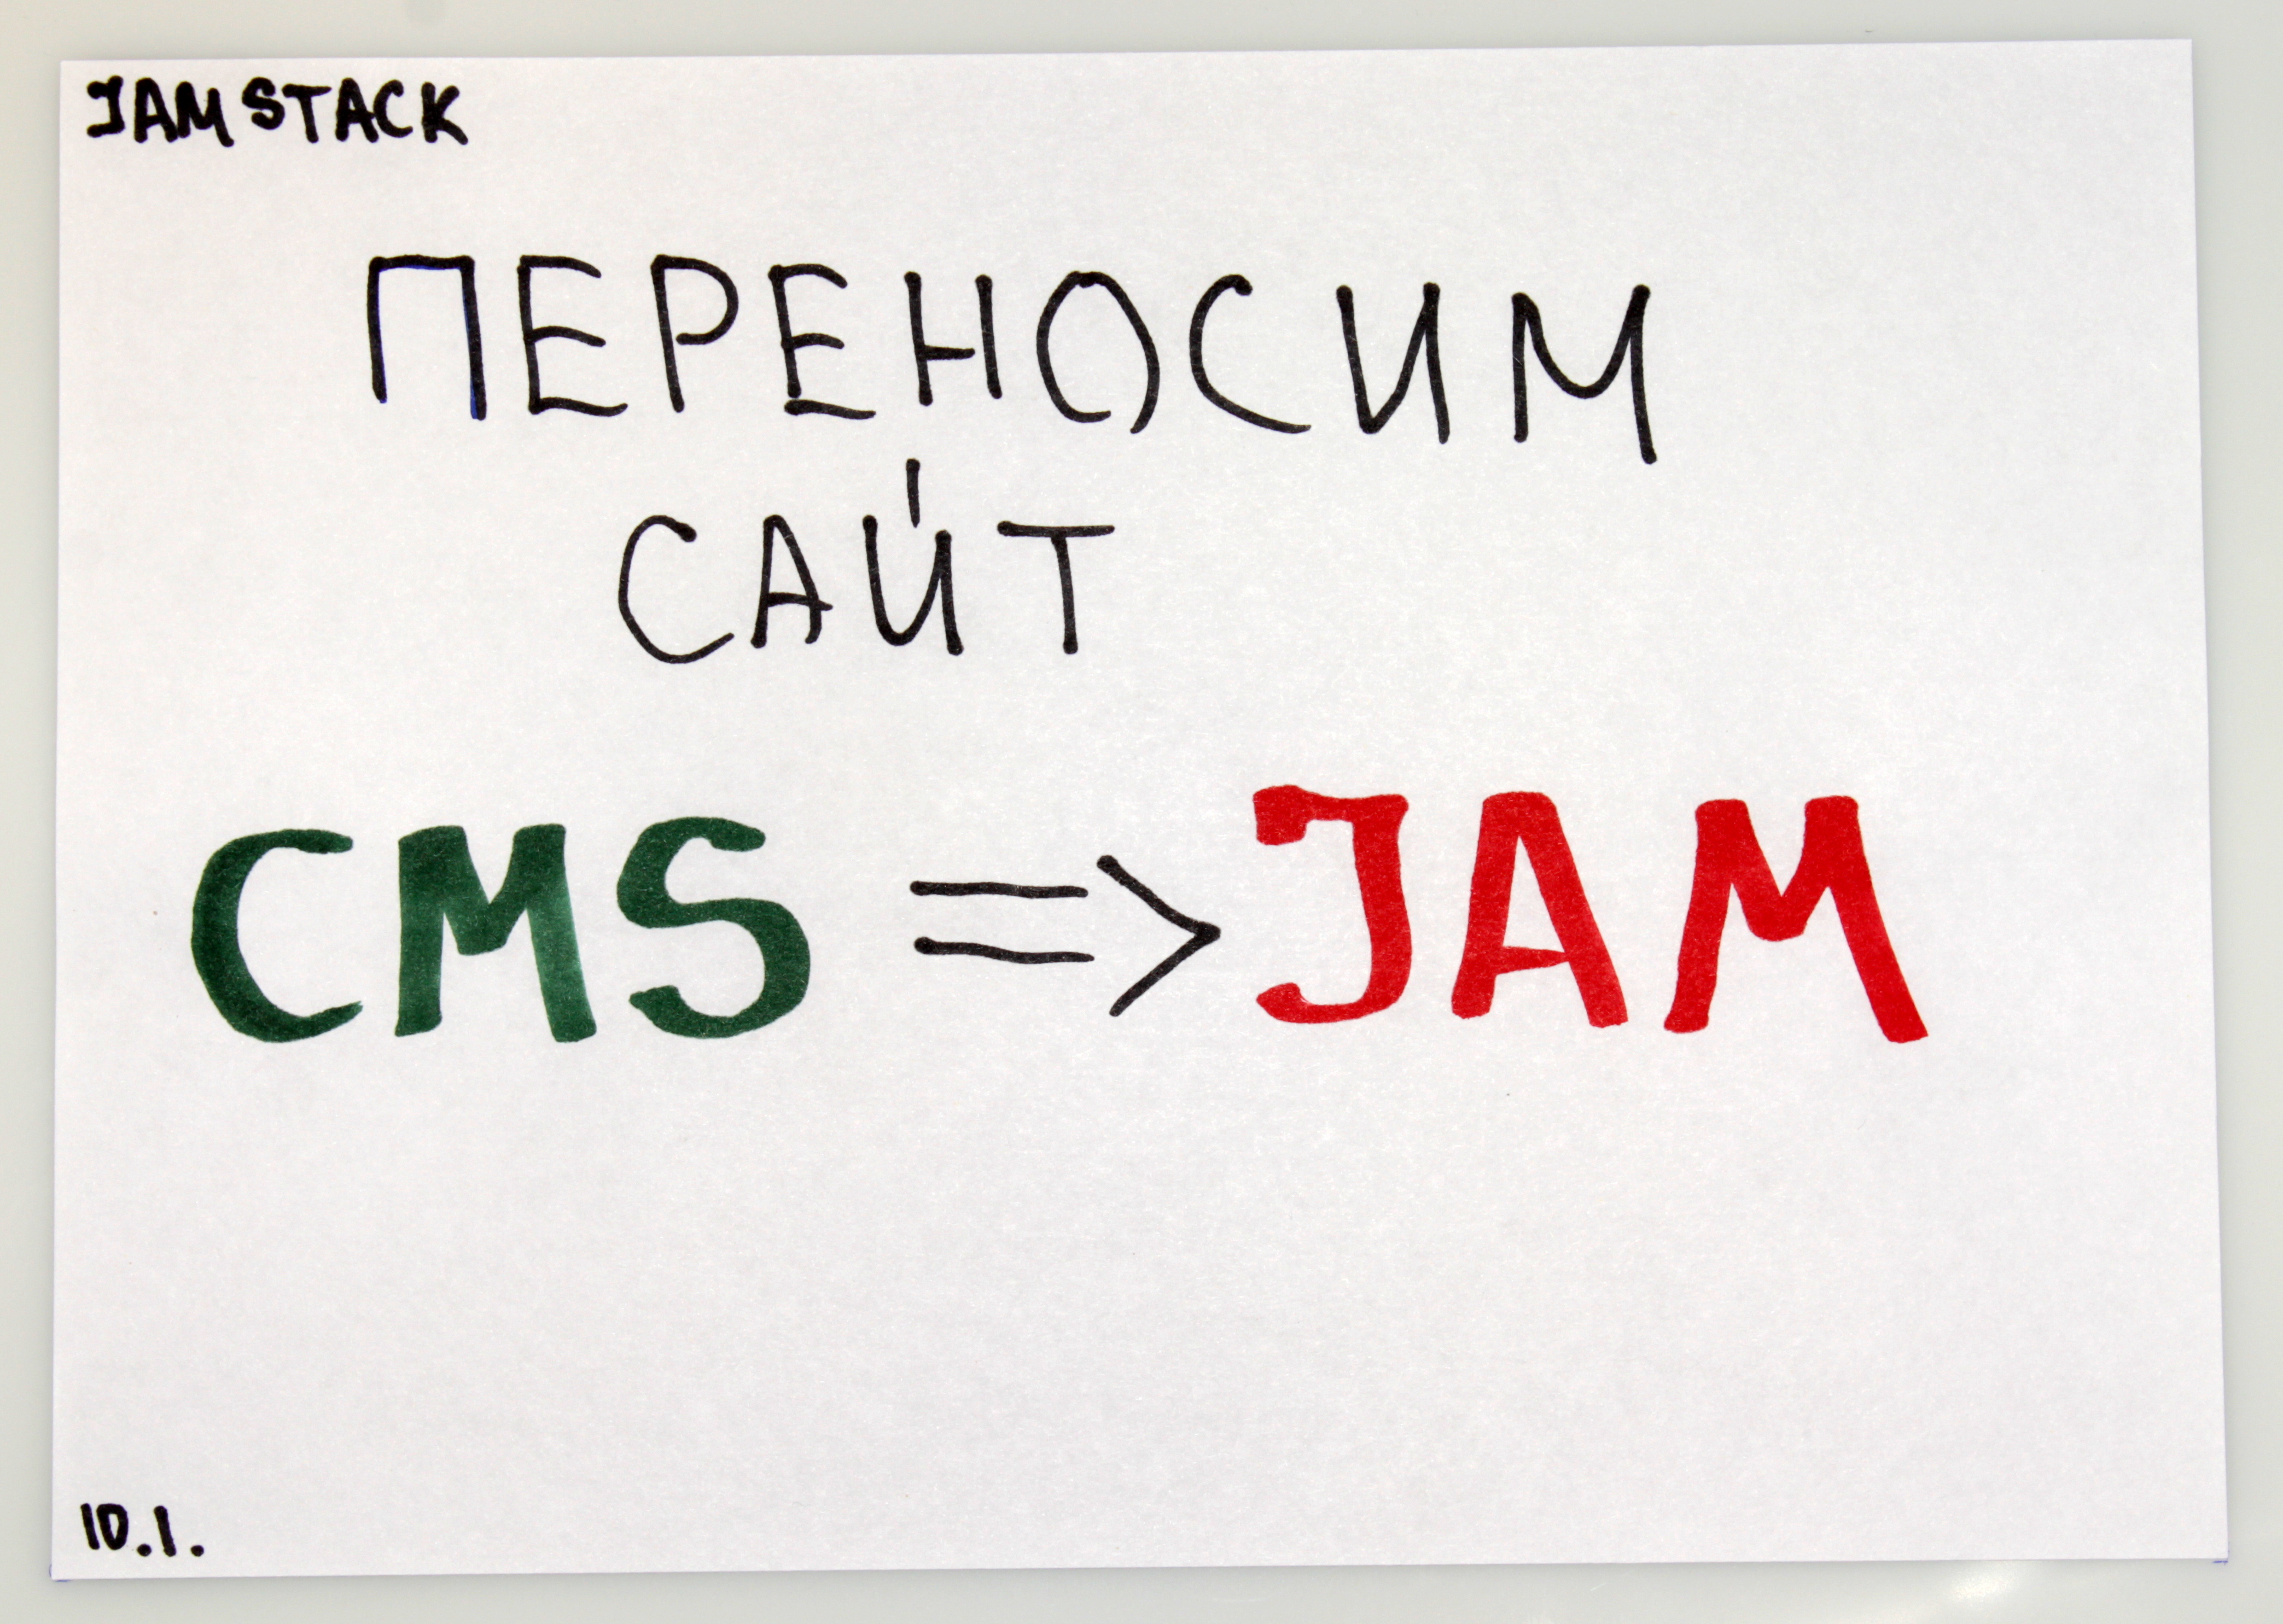 JAMSTACK
ПЕРЕНОСИМ
САЙТ
CMS => JAM
10.1.